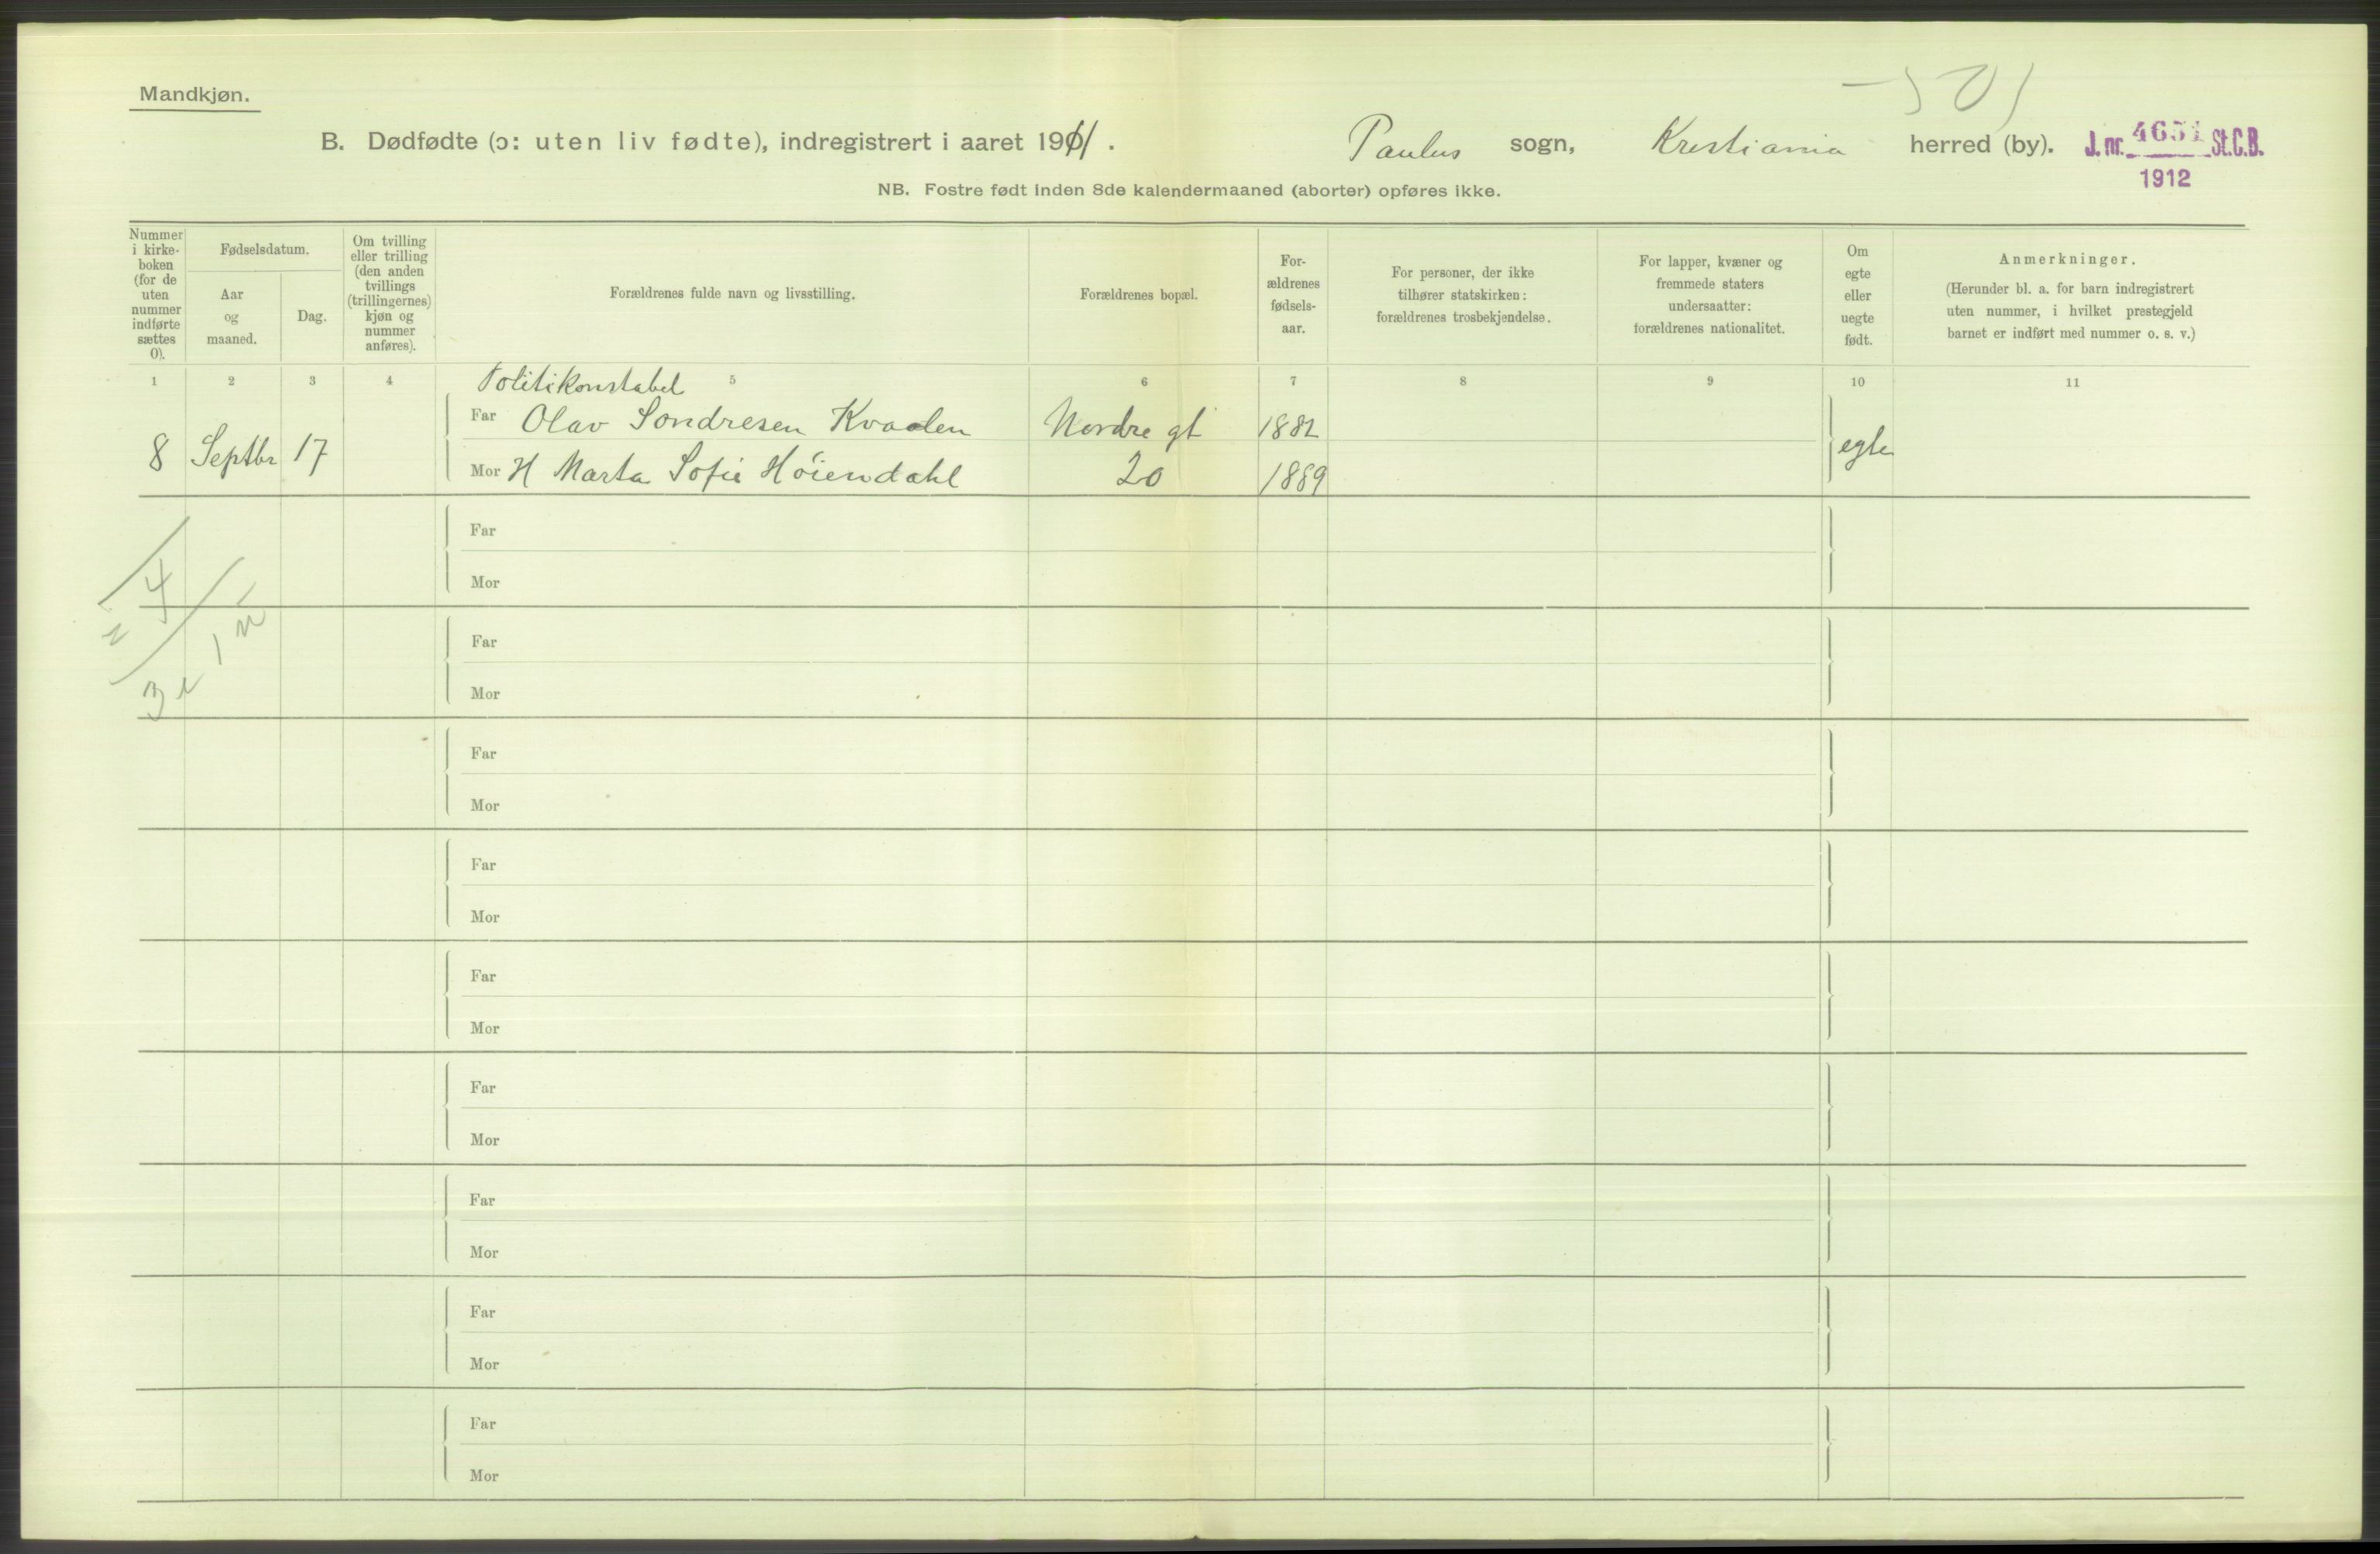 Mandkjøn.
B. Dødfødte (ɔ: uten liv fødte), indregistrert i aaret 1911. Paulus sogn, Kristiania herred (by). J. nr. 4651 St.C.B.
1912
NB. Fostre født inden 8de kalendermaaned (aborter) opføres ikke.
Nummer i kirke-boken (for de uten nummer indførte sættes 0).
Fødselsdatum.
Aar og maaned.
Dag.
Om tvilling eller trilling (den anden tvillings (trillingernes) kjøn og nummer anføres).
Forældrenes fulde navn og livsstilling.
Forældrenes bopæl.
For-ældrenes fødsels-aar.
For personer, der ikke tilhører statskirken: forældrenes trosbekjendelse.
For lapper, kvæner og fremmede staters undersaatter: forældrenes nationalitet.
Om egte eller uegte født.
Anmerkninger.
(Herunder bl. a. for barn indregistrert uten nummer, i hvilket prestegjeld barnet er indført med nummer o. s. v.)
1 2 3 4 5 6 7 8 9 10 11
Politikonstabel
Far Olav Sondresen Kvaalen Nordre gt 1882
8 Septbr 17 egte
Mor H Marta Sofie Höiendahl 20 1889
Far
Mor
4
Far
Mor
3
Far
Mor
Far
Mor
Far
Mor
Far
Mor
Far
Mor
Far
Mor
Far
Mor